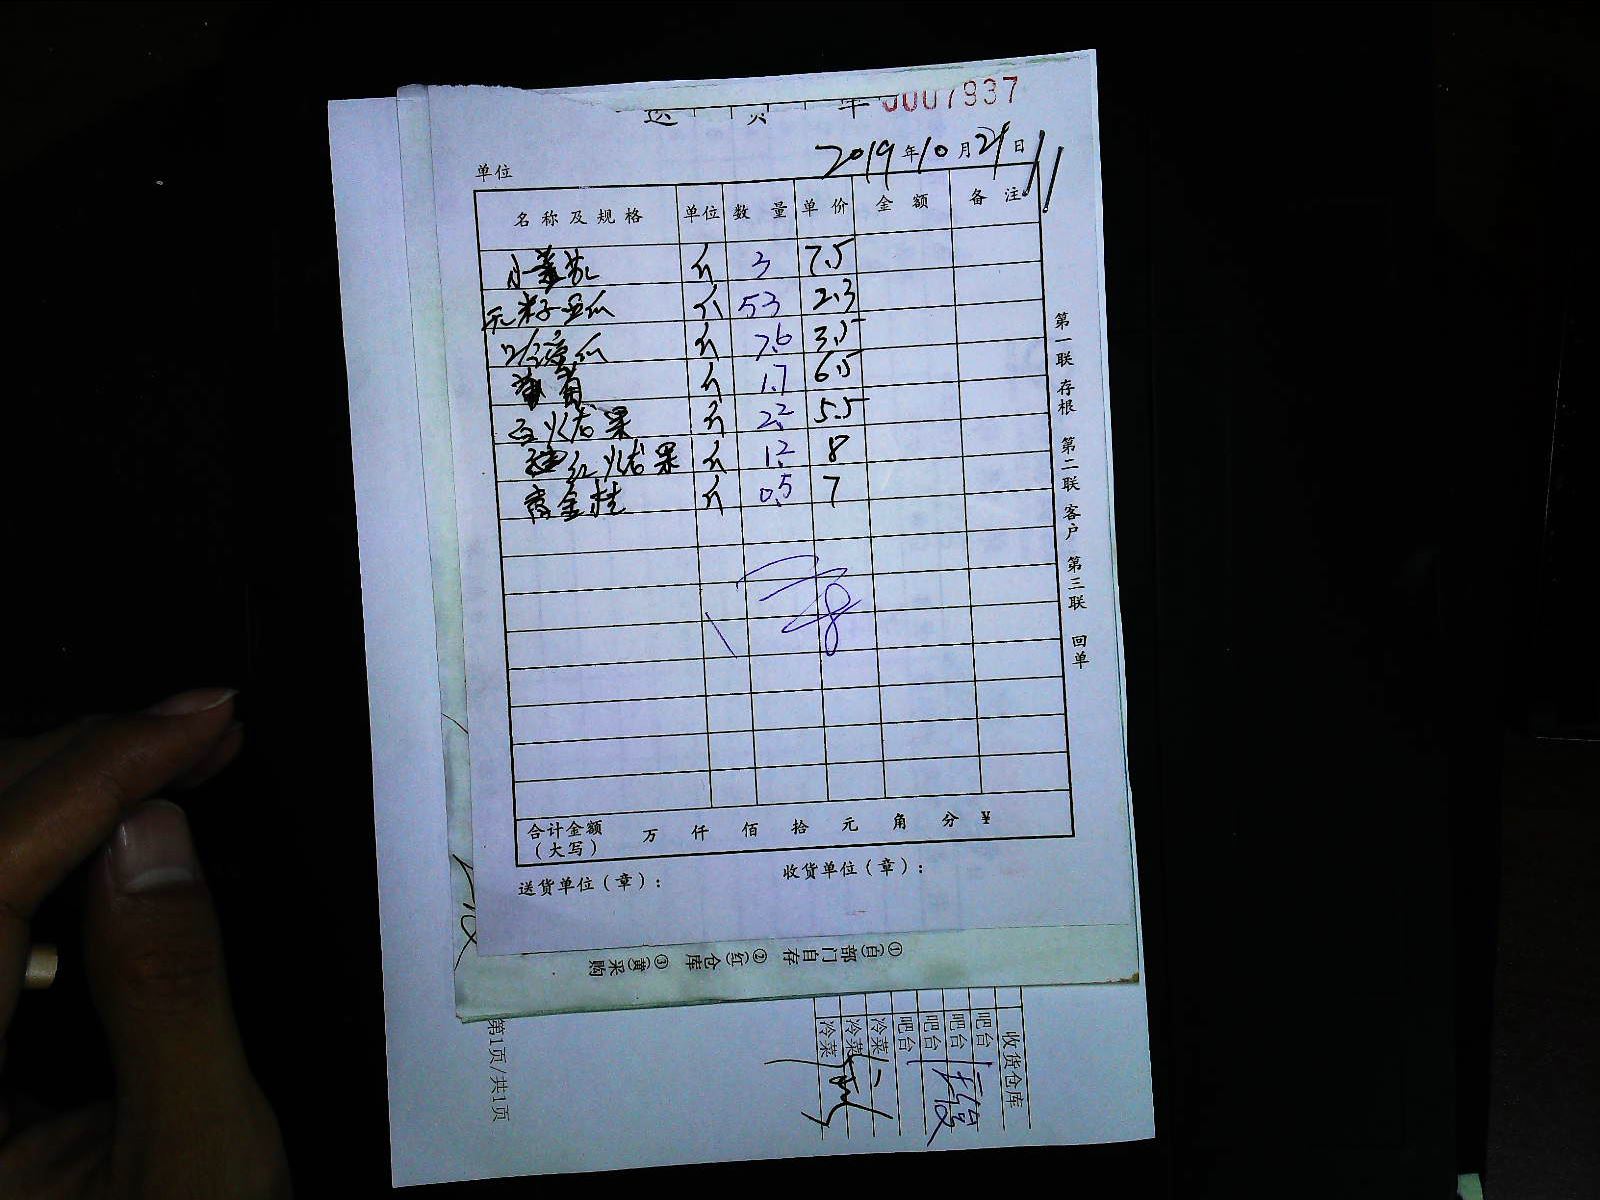 0007937
2019年10月29日
单位
名称及规格 单位 数量 单价 金额 备注
斤 3 7.5
无籽西瓜 斤 53 2.3
哈密瓜 斤 7.6 3.5
斤 1.7 6.5
白火龙果 斤 2.2 5.5
红火龙果 斤 1.2 8
黄金桔 斤 0.5 7
合计金额 万 仟 佰 拾 元 角 分 ¥
（大写）
送货单位（章）： 收货单位（章）：
第一联 存根 第二联 客户 第三联 回单
①(白)部门自存 ②(红)仓库 ③(黄)采购
收货仓库
吧台
吧台
吧台
吧台
冷菜
冷菜
冷菜
第1页/共1页